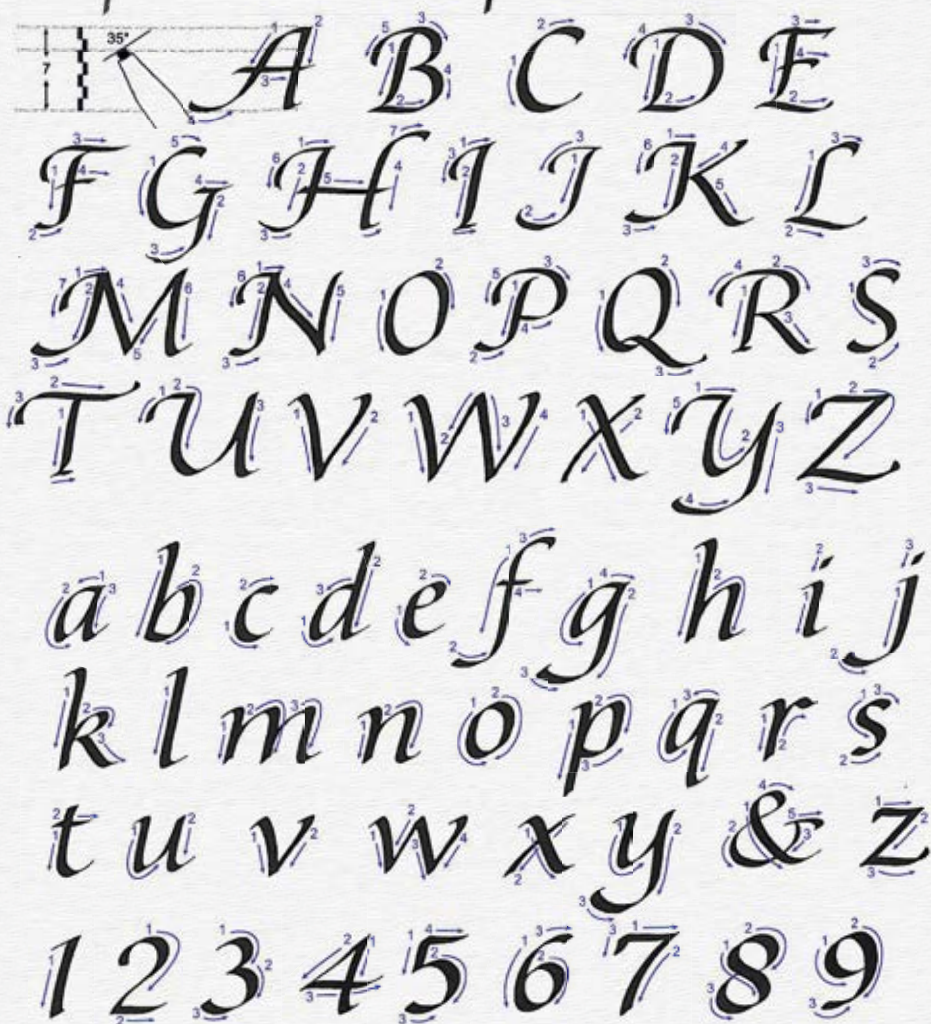 35°
7
A B C D E
F G H I J K L
M N O P Q R S
T U V W X Y Z
a b c d e f g h i j
k l m n o p q r s
t u v w x y & z
1 2 3 4 5 6 7 8 9